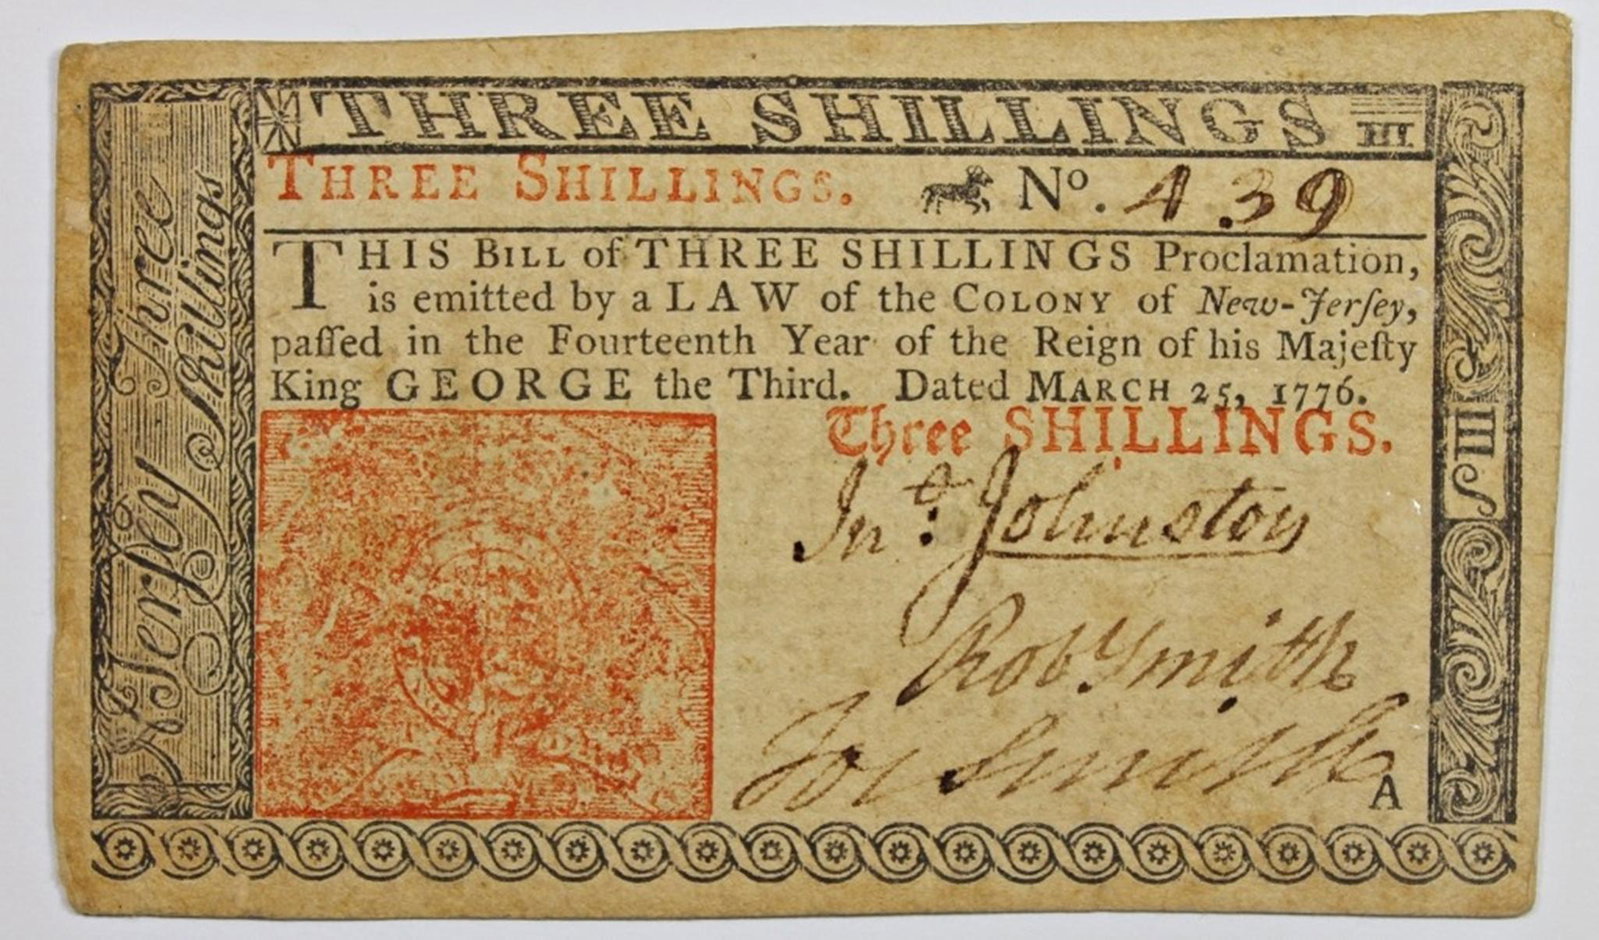 THREE SHILLINGS III.
THREE SHILLINGS. No. 439
THIS BILL of THREE SHILLINGS Proclamation,
is emitted by a LAW of the COLONY of New-Jerſey,
paſſed in the Fourteenth Year of the Reign of his Majeſty
King GEORGE the Third. Dated MARCH 25, 1776.
Three SHILLINGS.
Jn.º Johnston
Rob.t Smith
Jos Smith
A
N Jersey Three
Shillings
III S